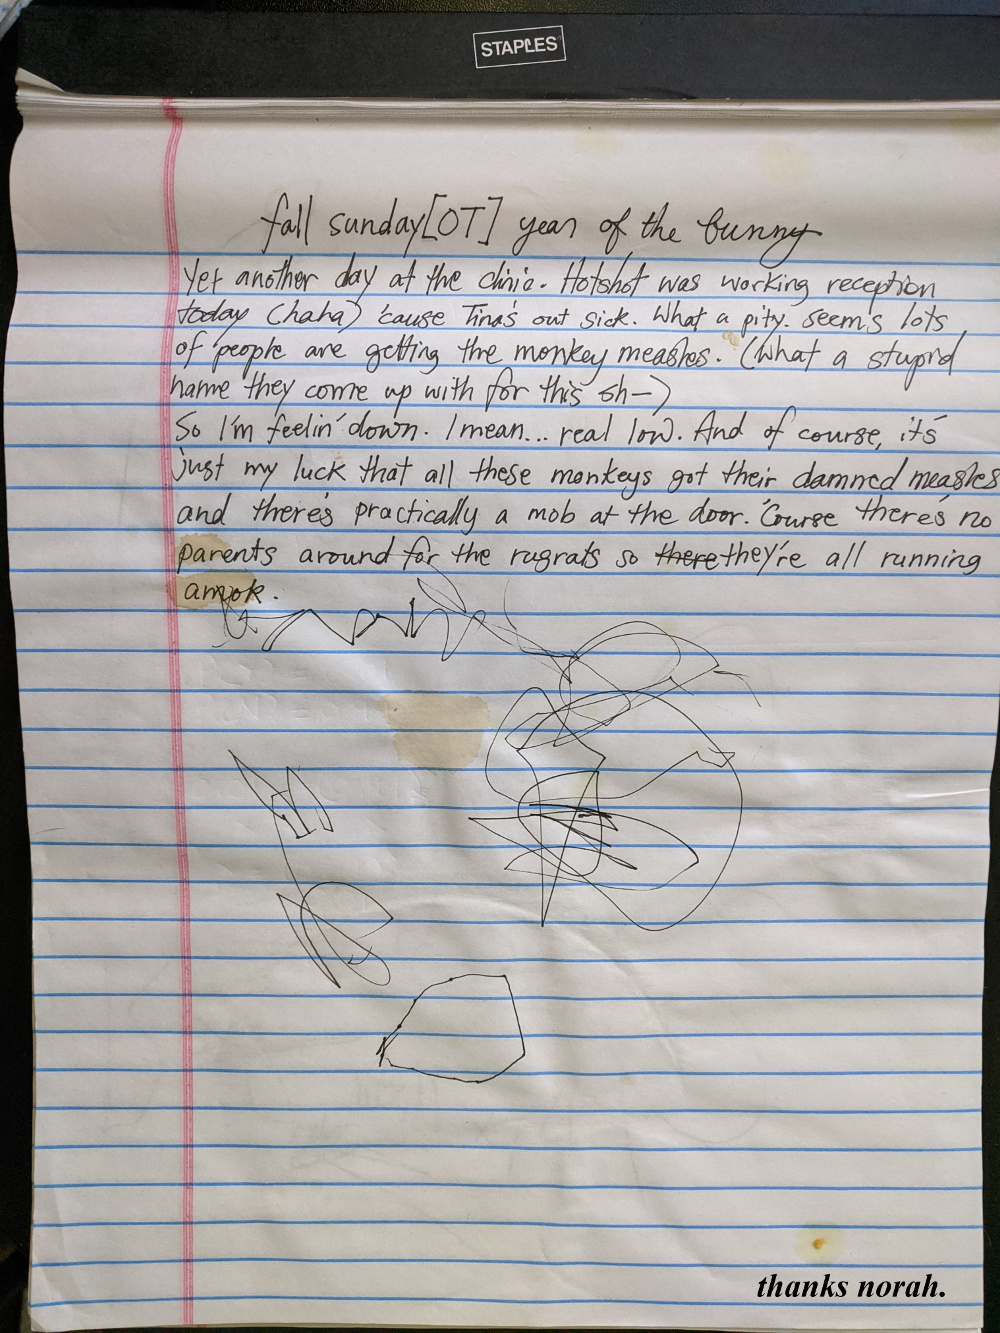 STAPLES
fall sunday[OT] year of the bunny
Yet another day at the clinic. Hotshot was working reception
today (haha) 'cause Tina's out sick. What a pity. seem's lots
of people are getting the monkey measles. (What a stupid
name they come up with for this sh—)
So I'm feelin' down. I mean... real low. And of course, it's
just my luck that all these monkeys got their damned measles
and there's practically a mob at the door. 'Course there's no
parents around for the rugrats so there they're all running
amok.
thanks norah.